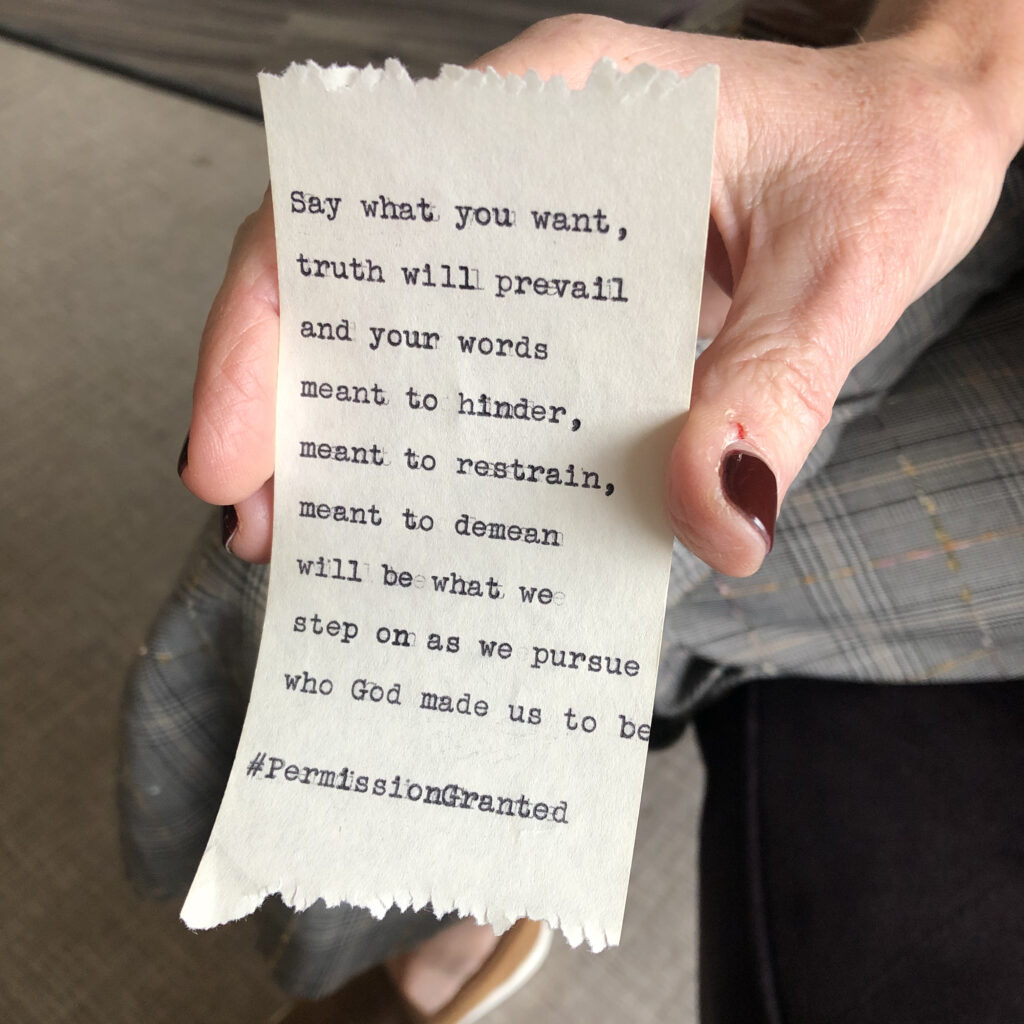 Say what you want,
truth will prevail
and your words
meant to hinder,
meant to restrain,
meant to demean
will be what we
step on as we pursue
who God made us to be
#PermissionGranted